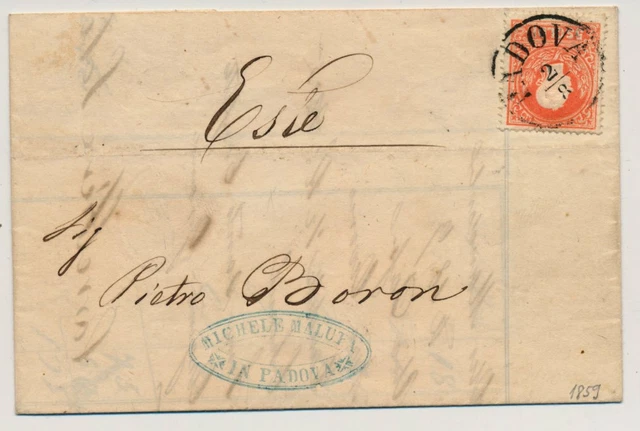 PADOVA
2/8
Este
Sig
Pietro Boron
MICHELE MALUTA
IN PADOVA
1859